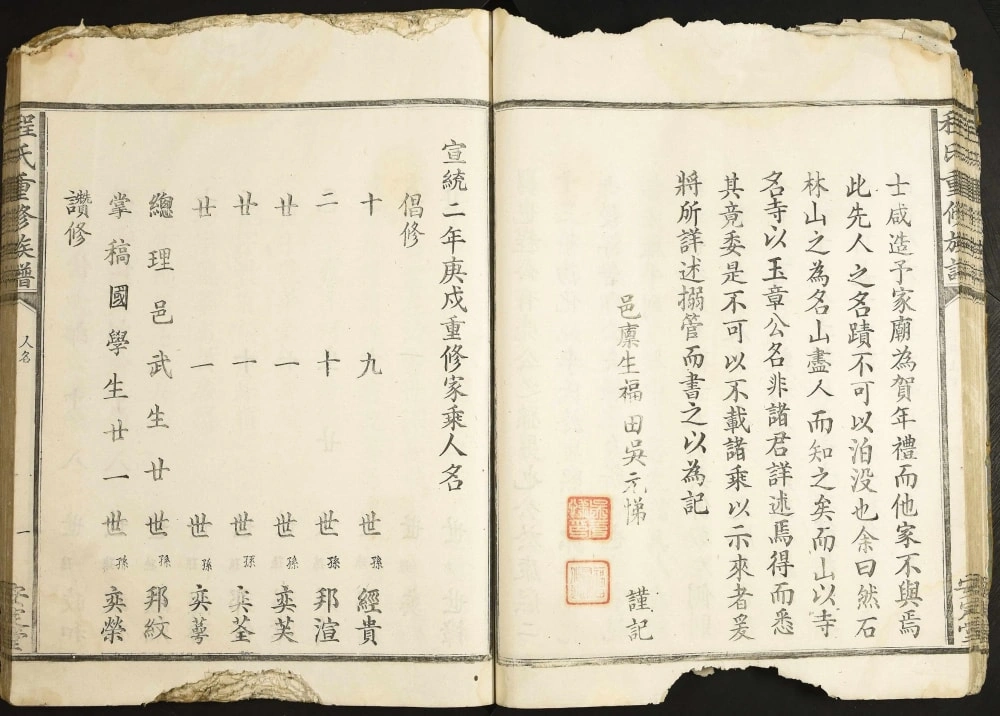 士咸造予家廟為賀年禮而他家不與焉
此先人之名蹟不可以泊没也余曰然石
林山之為名山盡人而知之矣而山以寺
名寺以玉章公名非諸君詳述焉得而悉
其竟委是不可以不載諸乘以示來者爰
將所詳述搦管而書之以為記
邑廩生福田吳元悌 謹記
宣統二年庚戌重修家乘人名
倡修
十九世孫經貴
二十世孫邦渲
廿一世孫奕芙
廿一世孫奕荃
廿一世孫奕蕚
總理邑武生廿世孫邦紋
掌稿國學生廿一世孫奕榮
讚修
程氏重修族譜 人名 一